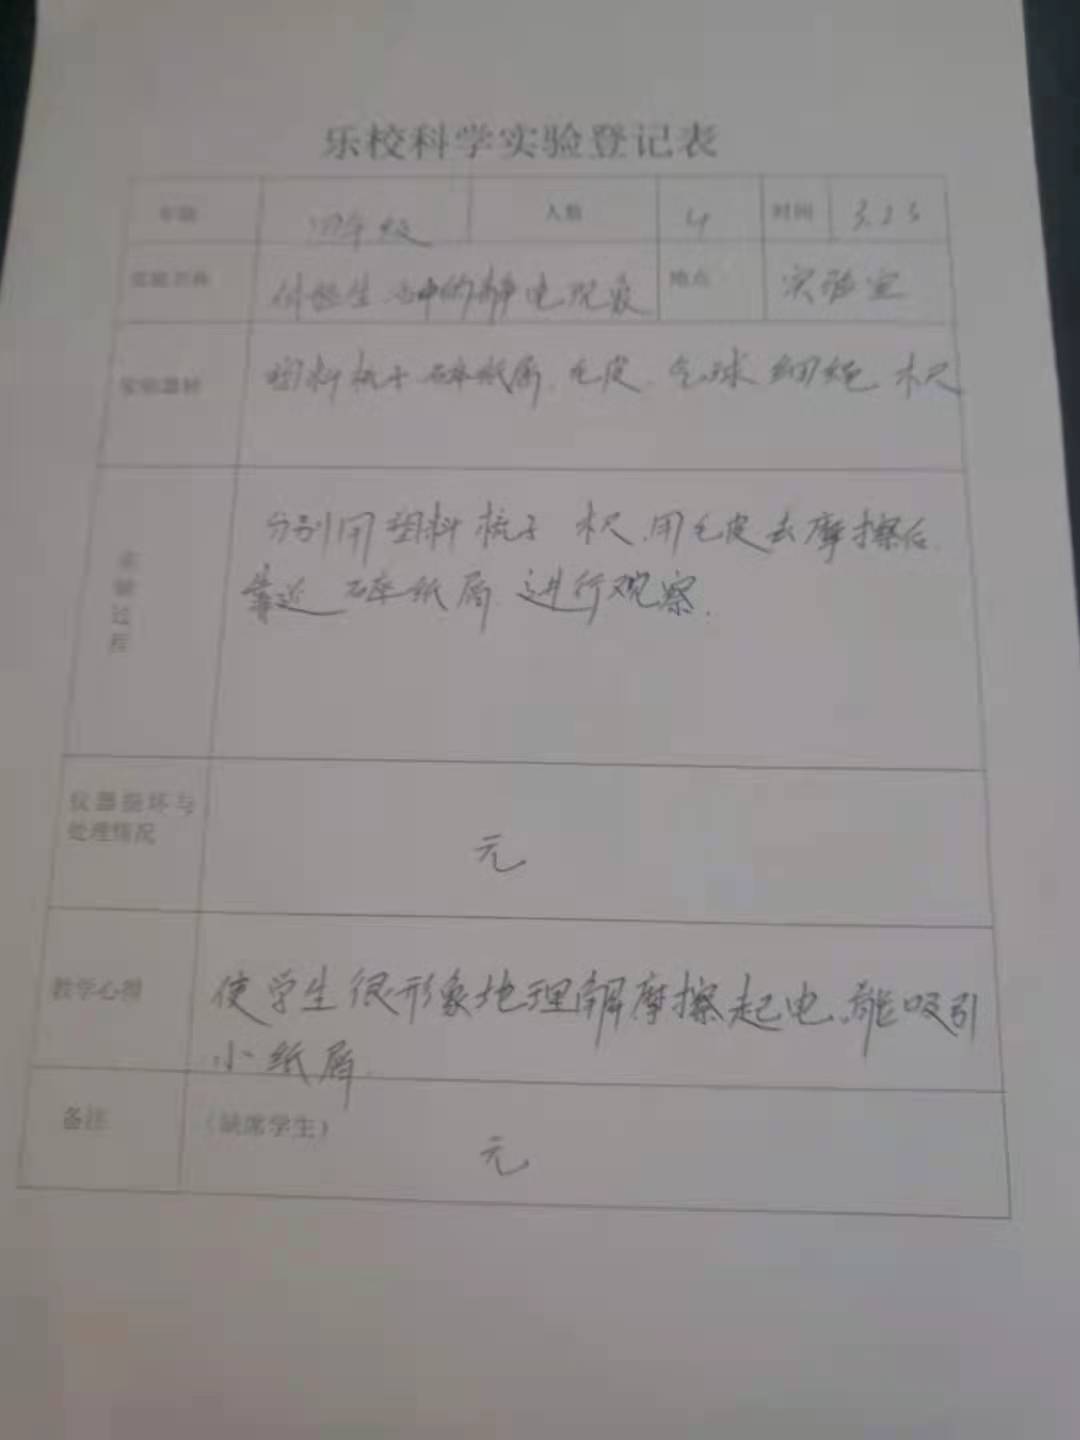 乐校科学实验登记表
年级 四年级 人数 4 时间 3.23
实验名称 体验生活中的静电现象 地点 实验室
实验器材 塑料梳子 碎纸屑 毛皮 气球 细绳 木尺
实验过程
分别用塑料梳子 木尺 用毛皮去摩擦后
靠近碎纸屑 进行观察.
仪器损坏与
处理情况
无
教学心得
使学生很形象地理解摩擦起电、能吸引
小纸屑.
备注 (缺席学生)
无